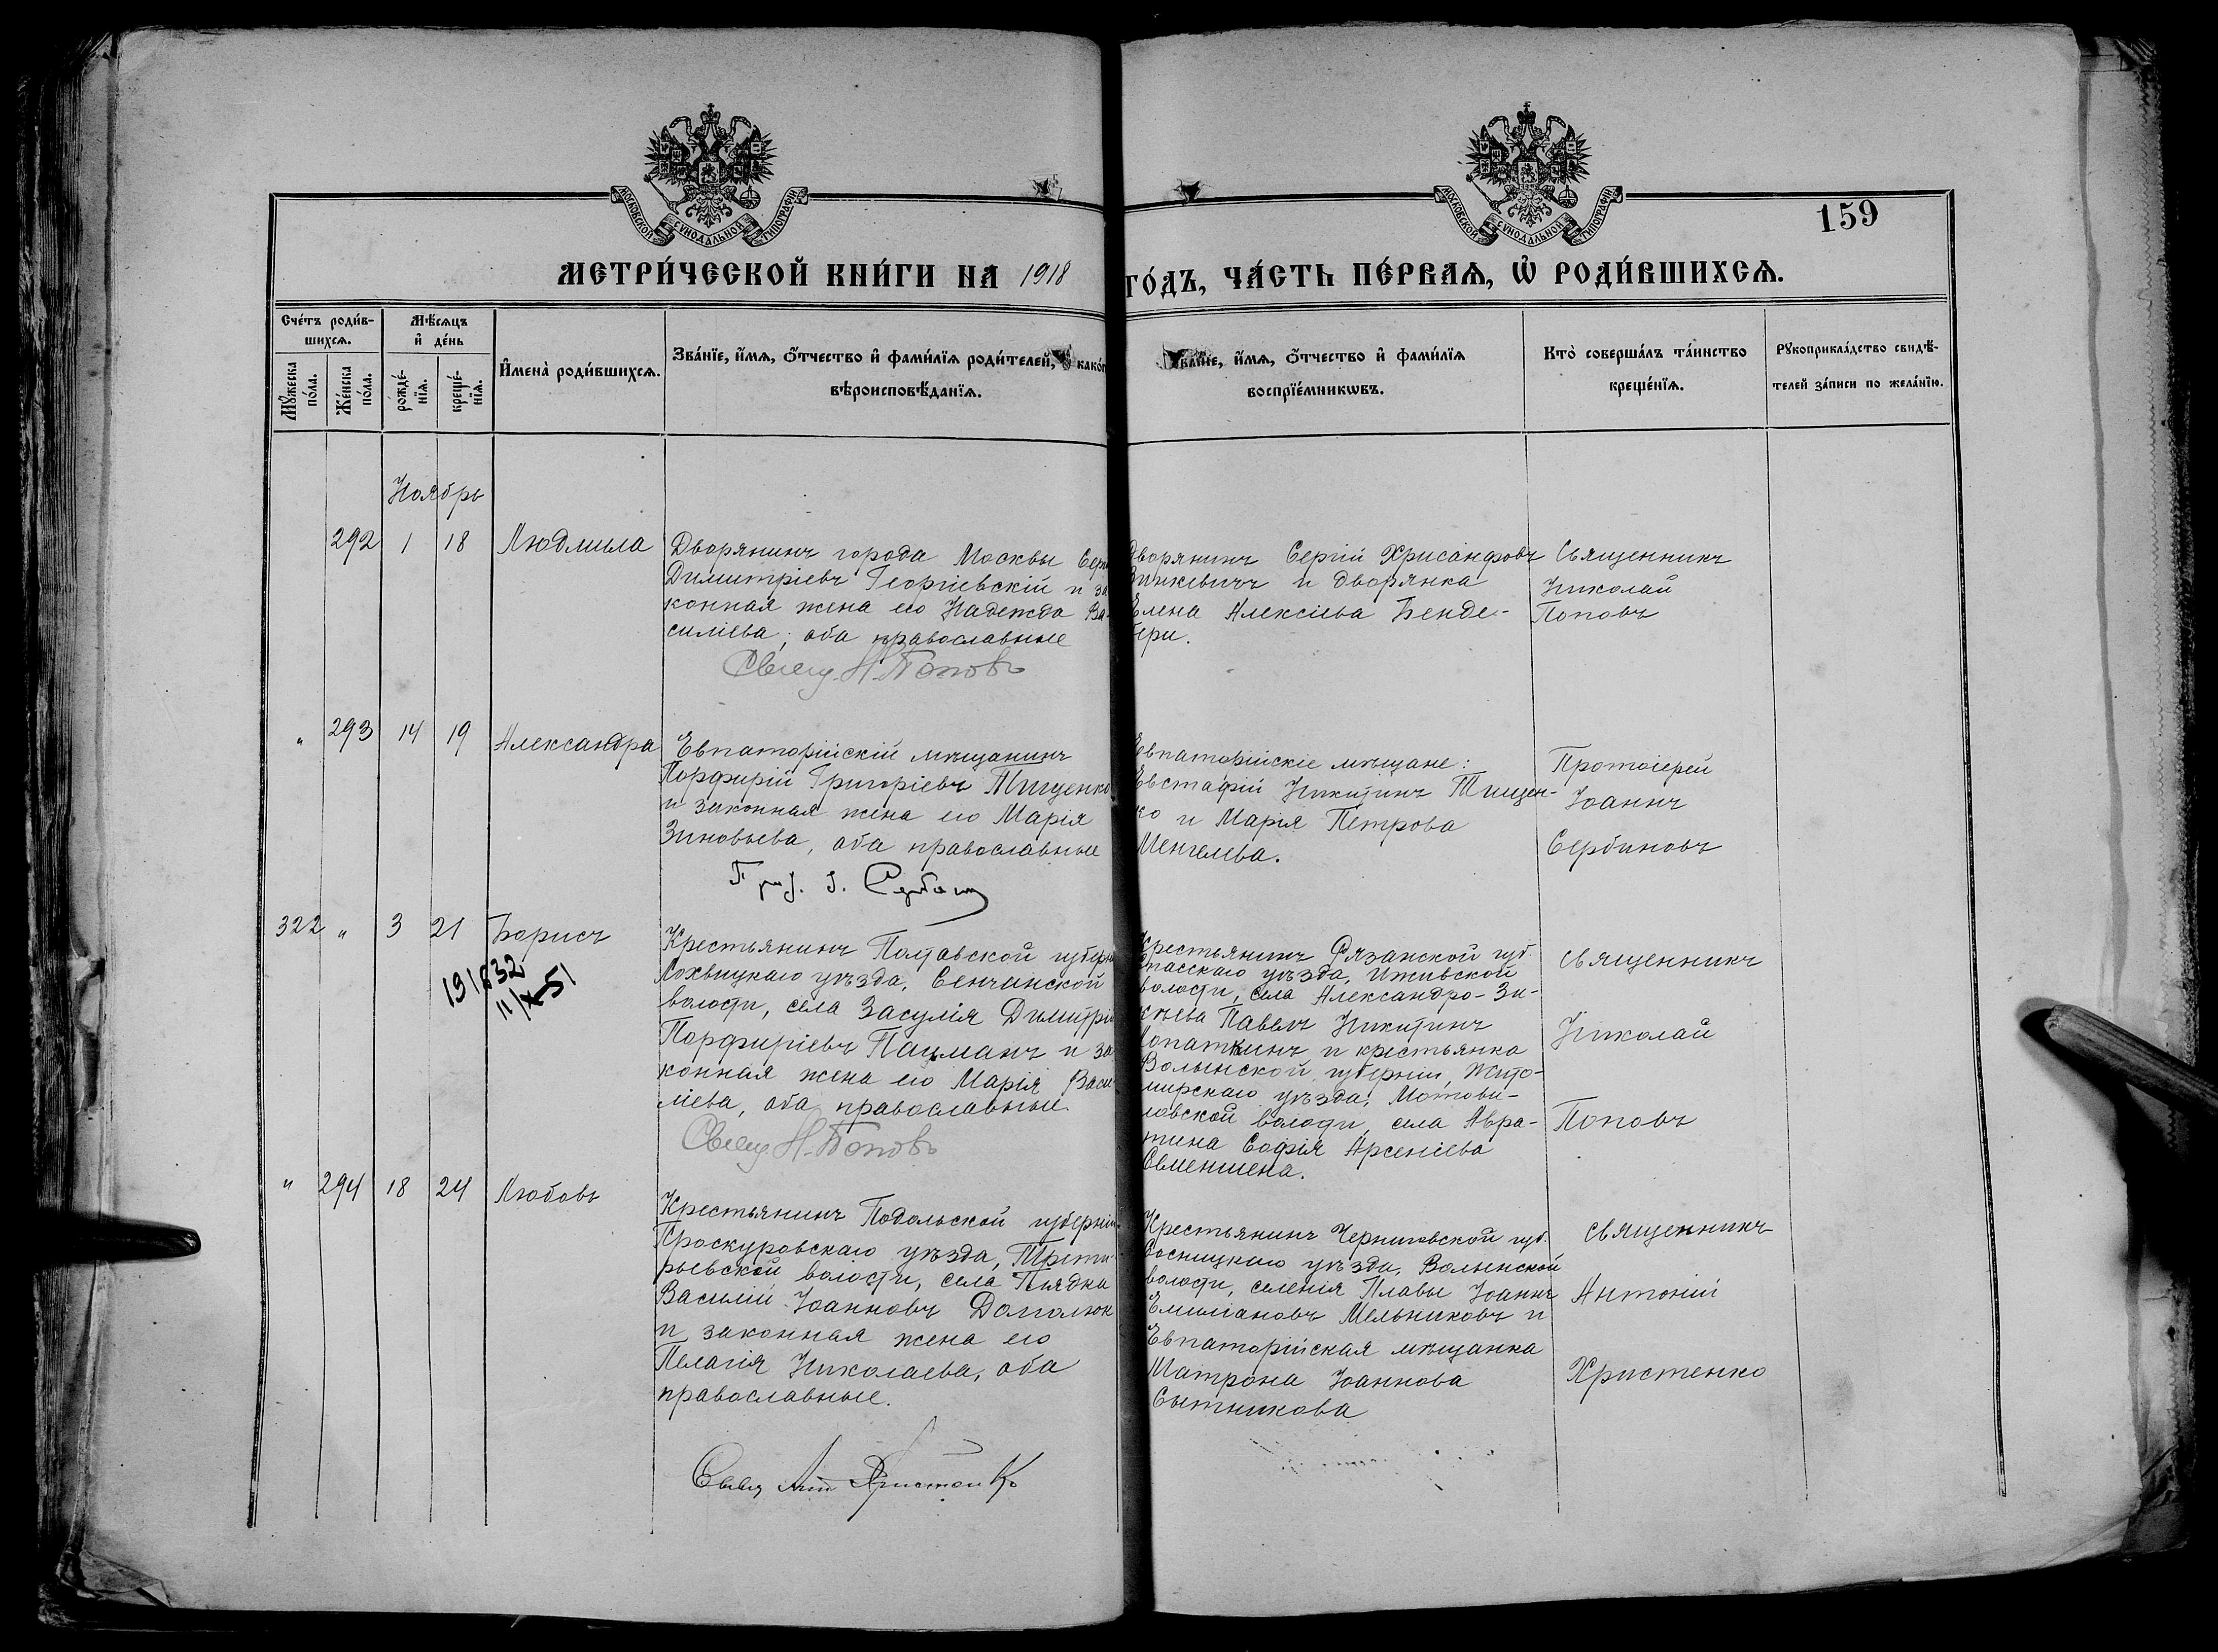 159
МЕТРИ́ЧЕСКОЙ КНИ́ГИ НА 1918 ГО́ДЪ, ЧА́СТЬ ПЕ́РВАѦ, Ѡ҆ РОДИ́ВШИХСѦ.
МОСКОВСКОЙ СѴНОДАЛЬНОЙ ТИПОГРАФІИ
МОСКОВСКОЙ СѴНОДАЛЬНОЙ ТИПОГРАФІИ
Сче́тъ роди́в-
шихсѧ.
Мꙋ́жеска
по́ла.
Же́нска
по́ла.
Мѣ́сѧцъ
и҆ де́нь
рожде́-
нїѧ.
креще́-
нїѧ.
И҆мена̀ роди́вшихсѧ.
Зва́нїе, и҆́мѧ, ѻ҆́тчество и҆ фами́лїѧ роди́телей, и҆ како́г
вѣроисповѣ́данїѧ.
Зва́нїе, и҆́мѧ, ѻ҆́тчество и҆ фами́лїѧ
воспрїе́мникѡвъ.
Кто̀ соверша́лъ та́инство
креще́нїѧ.
Рꙋкоприкла́дство свидѣ́-
телей за́писи по жела́нїю.
Ноябрь
292 1 18 Людмила
Дворянинъ города Москвы Серг
Димитріевъ Георгіевскій и за
конная жена его Надежда Ва-
силіева; оба православные
Свящ. Н. Поповъ
Дворянинъ Сергій Хрисанфовъ
Зинкевичъ и дворянка
Елена Алексіева Бенде-
бери.
Священникъ
Николай
Поповъ
" 293 14 19 Александра
Евпаторійскій мѣщанинъ
Порфирій Григоріевъ Тищенко
и законная жена его Марія
Зиновьева, оба православные
Прот. І. Сербинов
Евпаторійскіе мѣщане:
Евстафій Никитинъ Тищен-
ко и Марія Петрова
Менгелева.
Протоіерей
Іоаннъ
Сербиновъ
322 " 3 21 Борисъ
191632
11/X-51
Крестьянинъ Полтавской губерн
Лохвицкаго уѣзда, Сенчанской
волости, села Засулія Димитрій
Порфиріевъ Пацманъ и за
конная жена его Марія Васи
ліева, оба православные
Свящ. Н. Поповъ
Крестьянинъ Рязанской губ.
Спасскаго уѣзда, Ижевской
волости, села Александро-Зи-
кѣева Павелъ Никитинъ
Лопаткинъ и крестьянка
Волынской губерніи, Жито-
мирскаго уѣзда, Мотови-
ловской волости, села Авра-
тина Софія Арсеніева
Священникъ
Николай
Поповъ
" 294 18 24 Любовь
Крестьянинъ Подольской губерніи
Проскуровскаго уѣзда,
волости, села
Василій Іоанновъ
и законная жена его
Пелагія Николаева, оба
православные.
Свящ Ант Христенко
Крестьянинъ Черниговской губ.
Сосницкаго уѣзда, Волынской
волости, селенія Плавы Іоаннъ
Емиліановъ Мельниковъ и
Евпаторійская мѣщанка
Матрона Іоаннова
Сытникова
Священникъ
Антоній
Христенко